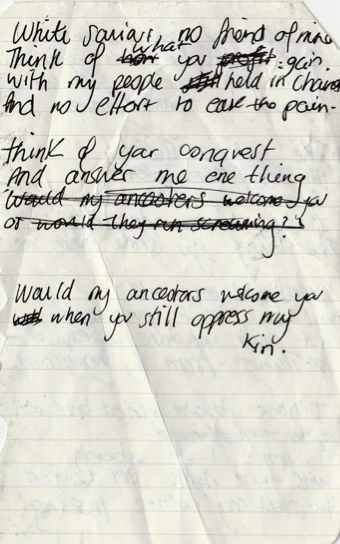 White saviour, no friend of mine
what
Think of how you profit: gain.
With my people held in chains
And no effort to ease the pain-
Think of your conquest
And answer me one thing
Would my ancestors welcome you
or would they run screaming?
Would my ancestors welcome you
when you still oppress my
Kin.